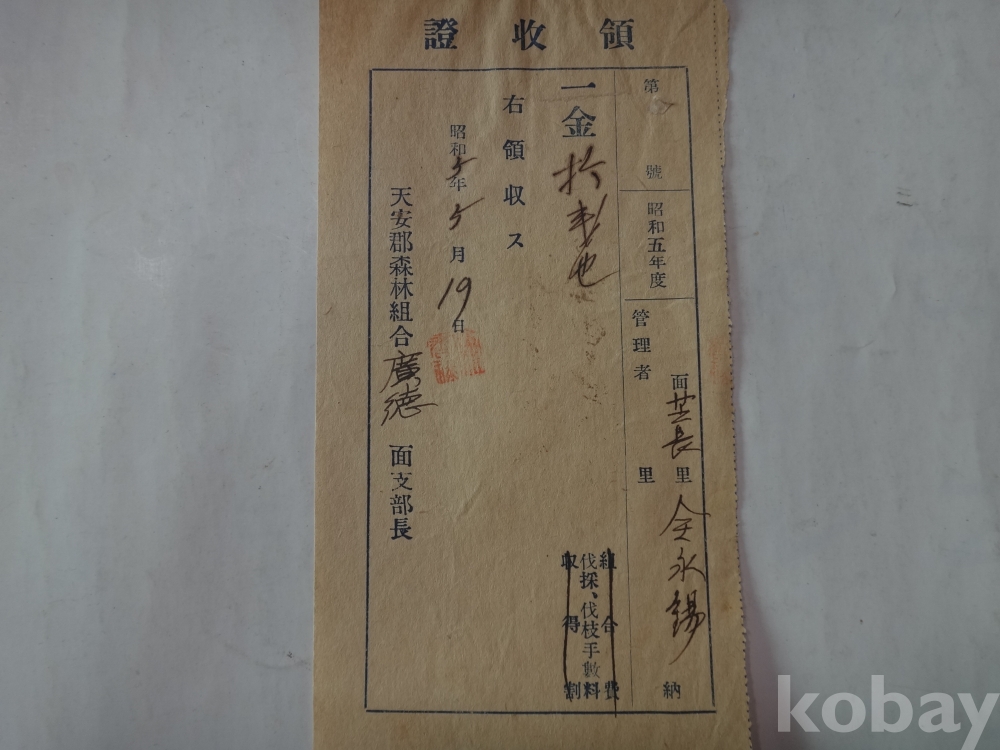 領收證
第 號
昭和五年度
面 芝長里 全永錫 納
管理者 里
一金拾
組合費
伐採、伐枝手數料
収得割
右領収ス
昭和5年5月19日
天安郡森林組合廣德面支部長
kobay